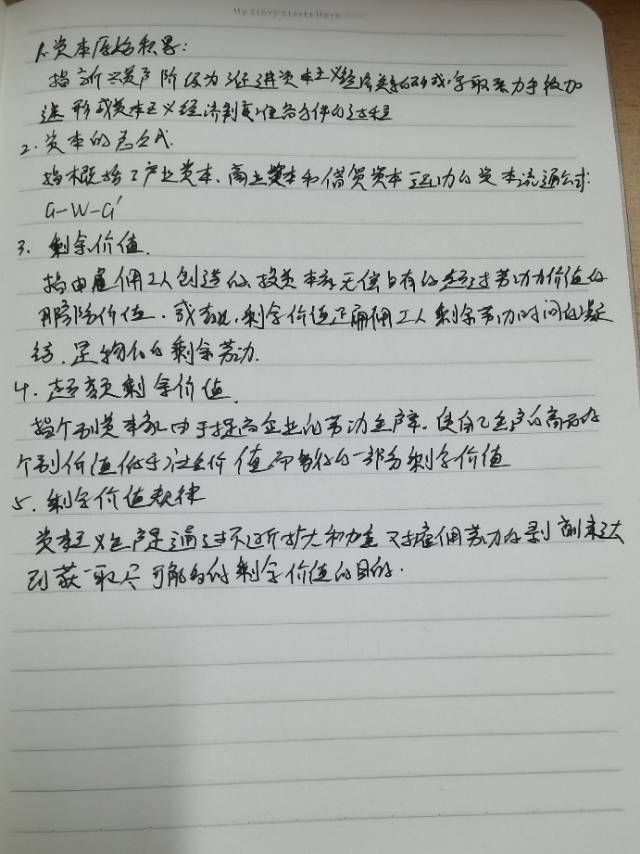 My Story Starts Here
1.资本原始积累:
指新兴资产阶级为了促进资本主义经济关系的形成,采取暴力手段加
速形成资本主义经济制度准备条件的过程
2.资本的总公式.
指概括了产业资本、商业资本和借贷资本运动的资本流通公式:
G-W-G'
3.剩余价值.
指由雇佣工人创造的,被资本家无偿占有的超过劳动力价值的
那部分价值.或者说,剩余价值是雇佣工人剩余劳动时间的凝
结.是物化的剩余劳动.
4.超额剩余价值.
指个别资本家由于提高企业的劳动生产率,使自己生产的商品的
个别价值低于社会价值而多得的一部分剩余价值
5.剩余价值规律
资本主义生产是通过不断扩大和加重对雇佣劳动的剥削来达
到获取尽可能多的剩余价值的目的.